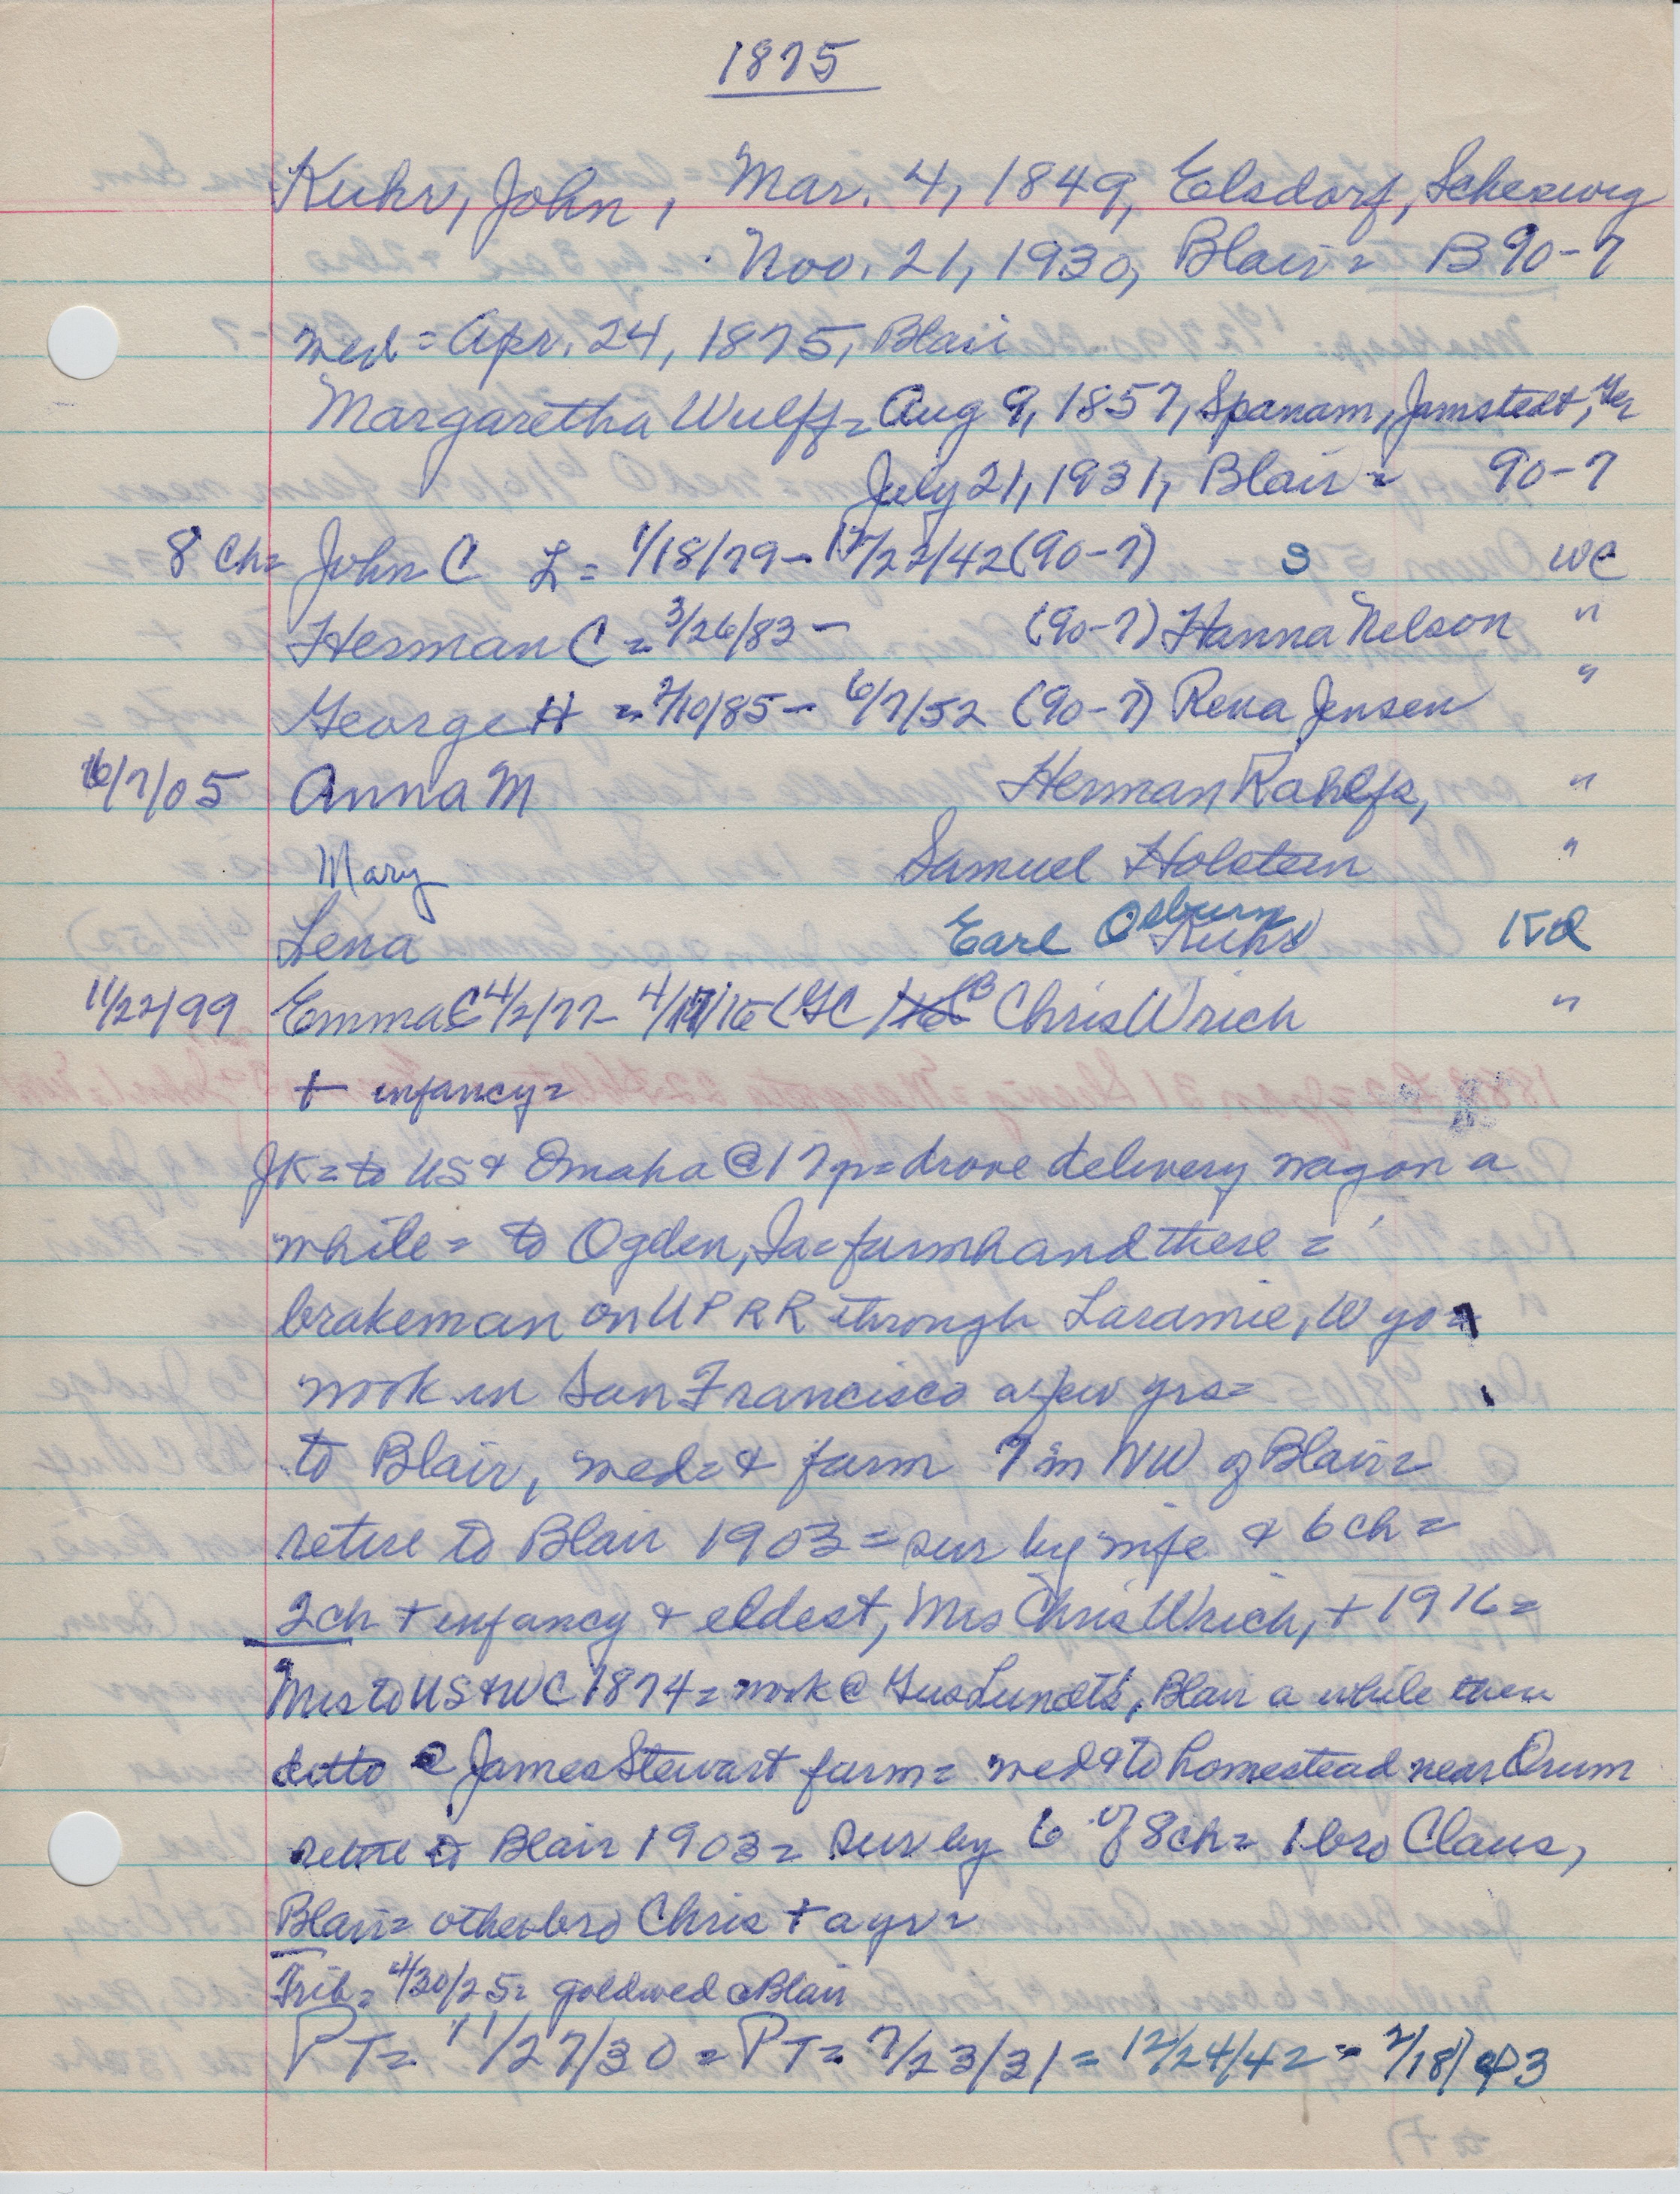 1875
Kuhr, John, Mar. 4, 1849, Elsdorf, Scheswig
Nov. 21, 1930, Blair = B 90-7
wed = Apr. 24, 1875, Blair
Margaretha Wulff = Aug 9, 1857, Spanam, Jamstedt, Ger
July 21, 1931, Blair = 90-7
8 ch = John C L = 1/18/79 - 12/22/42 (90-7) S WC
Herman C = 3/26/83 - (90-7) Hanna Nelson "
George H = 2/10/85 - 6/7/52 (90-7) Rena Jensen "
6/7/05 Anna M Herman Rahlfs, "
Mary Samuel Holstein "
Lena Earl Osburn KR
11/22/99 Emma C 4/2/77 - 4/17/16 (GC B Chris Wrich "
+ infancy =
JK = to US & Omaha @ 17 p = drove delivery wagon a
while = to Ogden, Ia = farmhand there =
brakeman on UPRR through Laramie, Wyo =
work in San Francisco a few yrs =
to Blair, wed = & farm 7 m NW of Blair =
retire to Blair 1903 = sur by wife & 6 ch =
2 ch + infancy & eldest, Mrs Chris Wrich, + 1916 =
Mrs to US & WC 1874 = work @ Gus Lundt's, Blair a while then
ditto @ James Stewart farm = wed & to homestead near Orum
retire to Blair 1903 = sur by 6 of 8 ch = 1 bro Claus,
Blair = other bro Chris + a yr =
Trib = 4/30/25 = gold wed @ Blair
PT = 11/27/30 = PT = 7/23/31 = 12/24/42 = 2/18/43